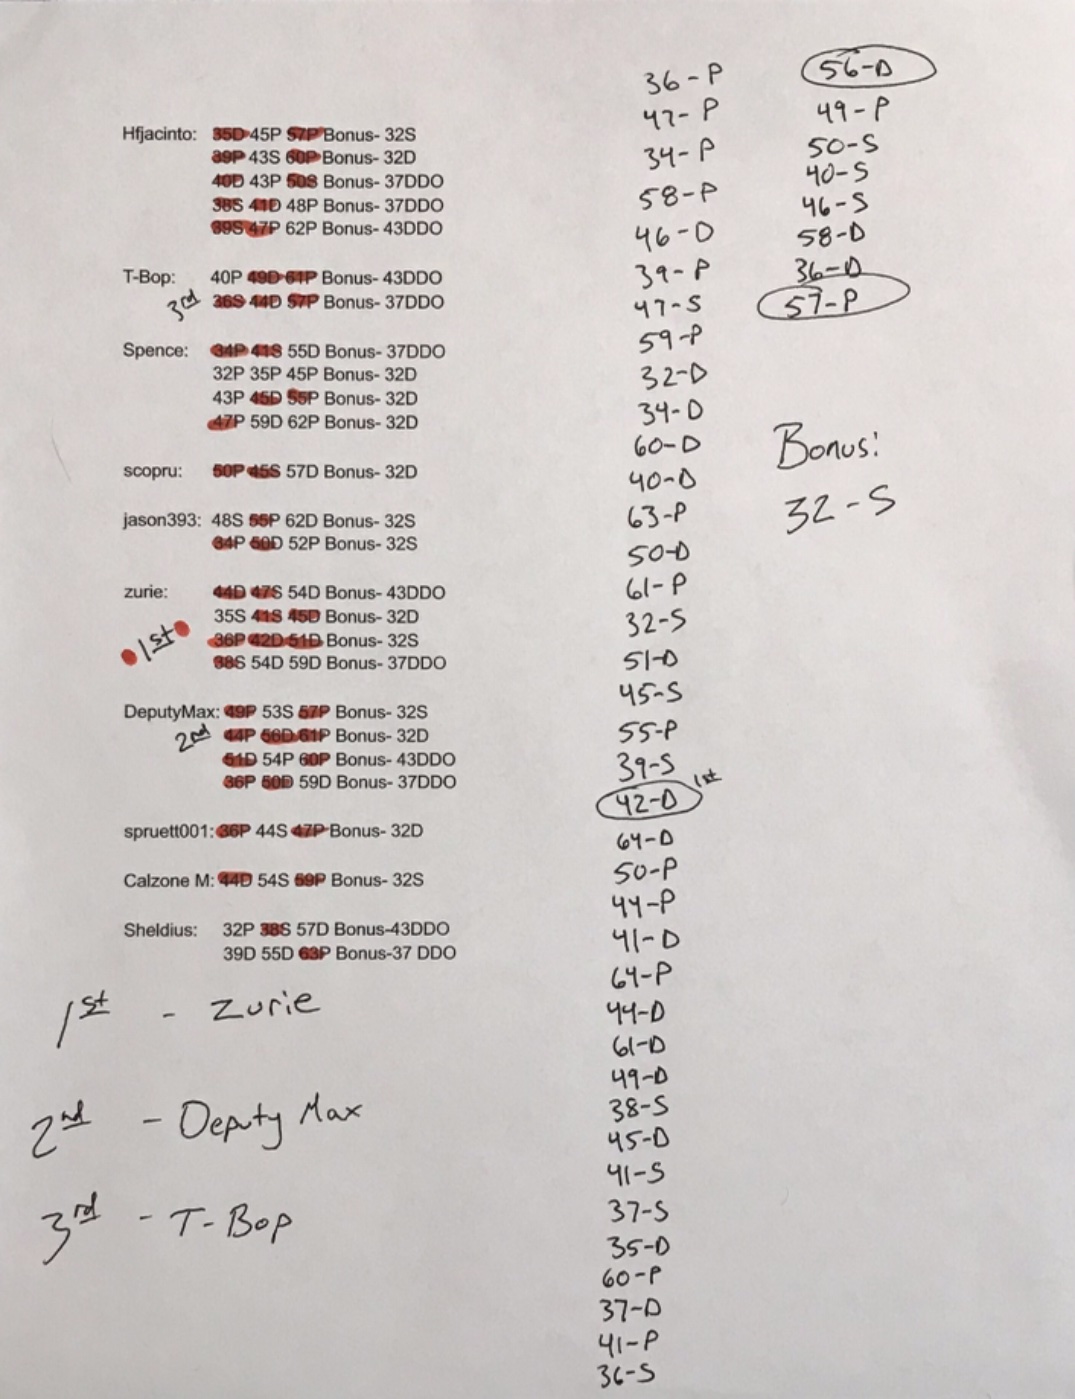 Hfjacinto: 35D 45P 57P Bonus- 32S
39P 43S 60P Bonus- 32D
40D 43P 50S Bonus- 37DDO
38S 41D 48P Bonus- 37DDO
39S 47P 62P Bonus- 43DDO
T-Bop: 40P 49D 61P Bonus- 43DDO
3rd 36S 44D 57P Bonus- 37DDO
Spence: 34P 41S 55D Bonus- 37DDO
32P 35P 45P Bonus- 32D
43P 45D 55P Bonus- 32D
47P 59D 62P Bonus- 32D
scopru: 50P 45S 57D Bonus- 32D
jason393: 48S 55P 62D Bonus- 32S
34P 50D 52P Bonus- 32S
zurie: 44D 47S 54D Bonus- 43DDO
35S 41S 45D Bonus- 32D
1st 36P 42D 51D Bonus- 32S
38S 54D 59D Bonus- 37DDO
DeputyMax: 49P 53S 57P Bonus- 32S
2nd 44P 56D 61P Bonus- 32D
51D 54P 60P Bonus- 43DDO
36P 50D 59D Bonus- 37DDO
spruett001: 36P 44S 47P Bonus- 32D
Calzone M: 44D 54S 59P Bonus- 32S
Sheldius: 32P 38S 57D Bonus-43DDO
39D 55D 63P Bonus-37 DDO
1st - Zurie
2nd - Deputy Max
3rd - T-Bop
36-P
47-P
34-P
58-P
46-D
39-P
47-S
59-P
32-D
34-D
60-D
40-D
63-P
50-D
61-P
32-S
51-D
45-S
55-P
39-S
42-D 1st
64-D
50-P
44-P
41-D
64-P
44-D
61-D
49-D
38-S
45-D
41-S
37-S
35-D
60-P
37-D
41-P
36-S
56-D
49-P
50-S
40-S
46-S
58-D
36-D
57-P
Bonus:
32-S